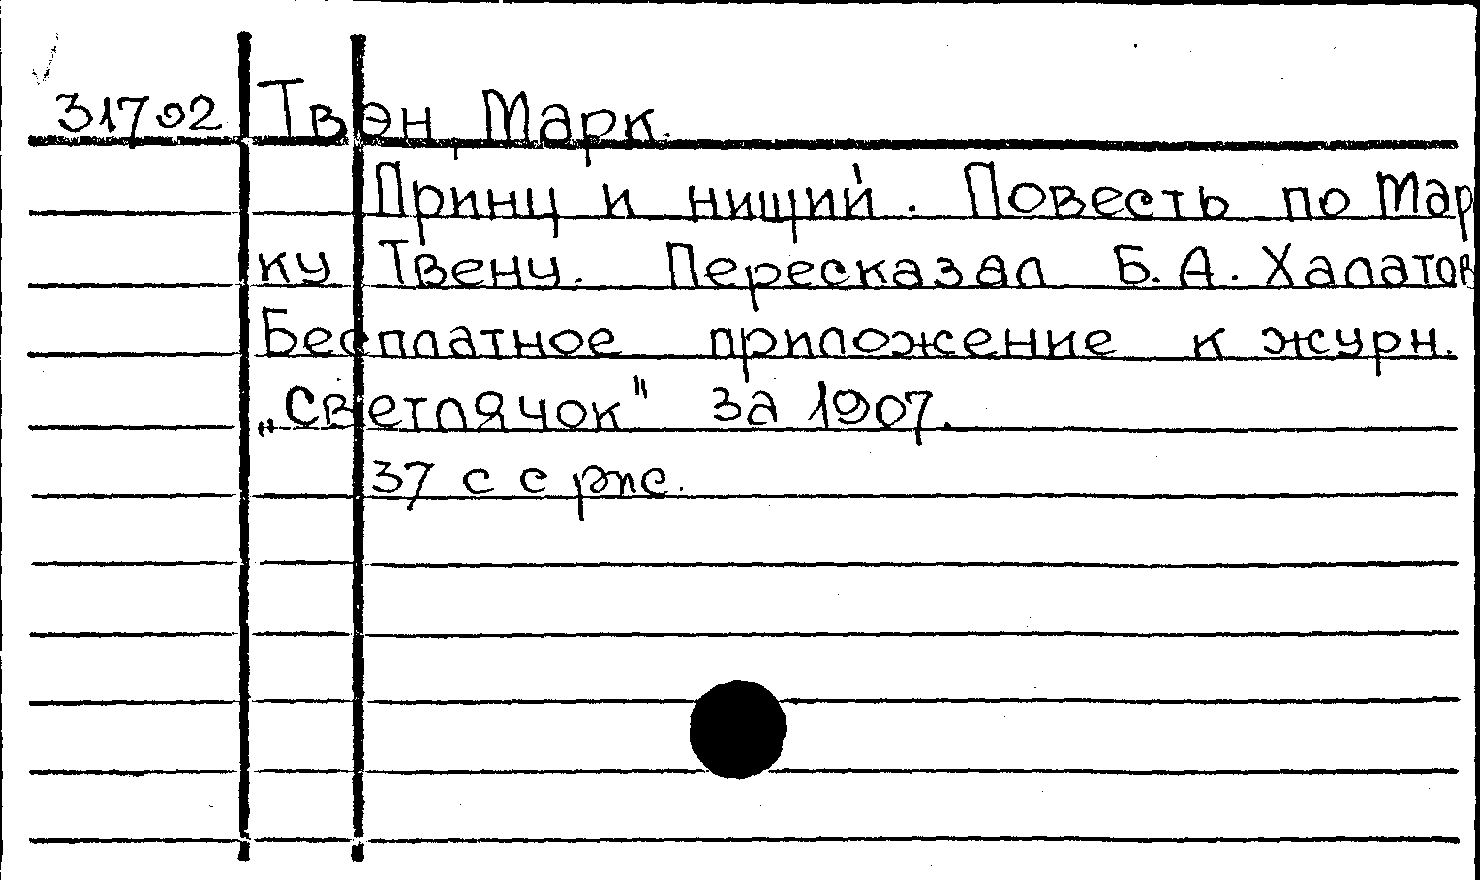 31702 Твэн, Марк.
Принц и нищий. Повесть по Мар
ку Твену. Пересказал Б. А. Халатов
Бесплатное приложение к журн.
„Светлячок" за 1907.
37 с с рис.